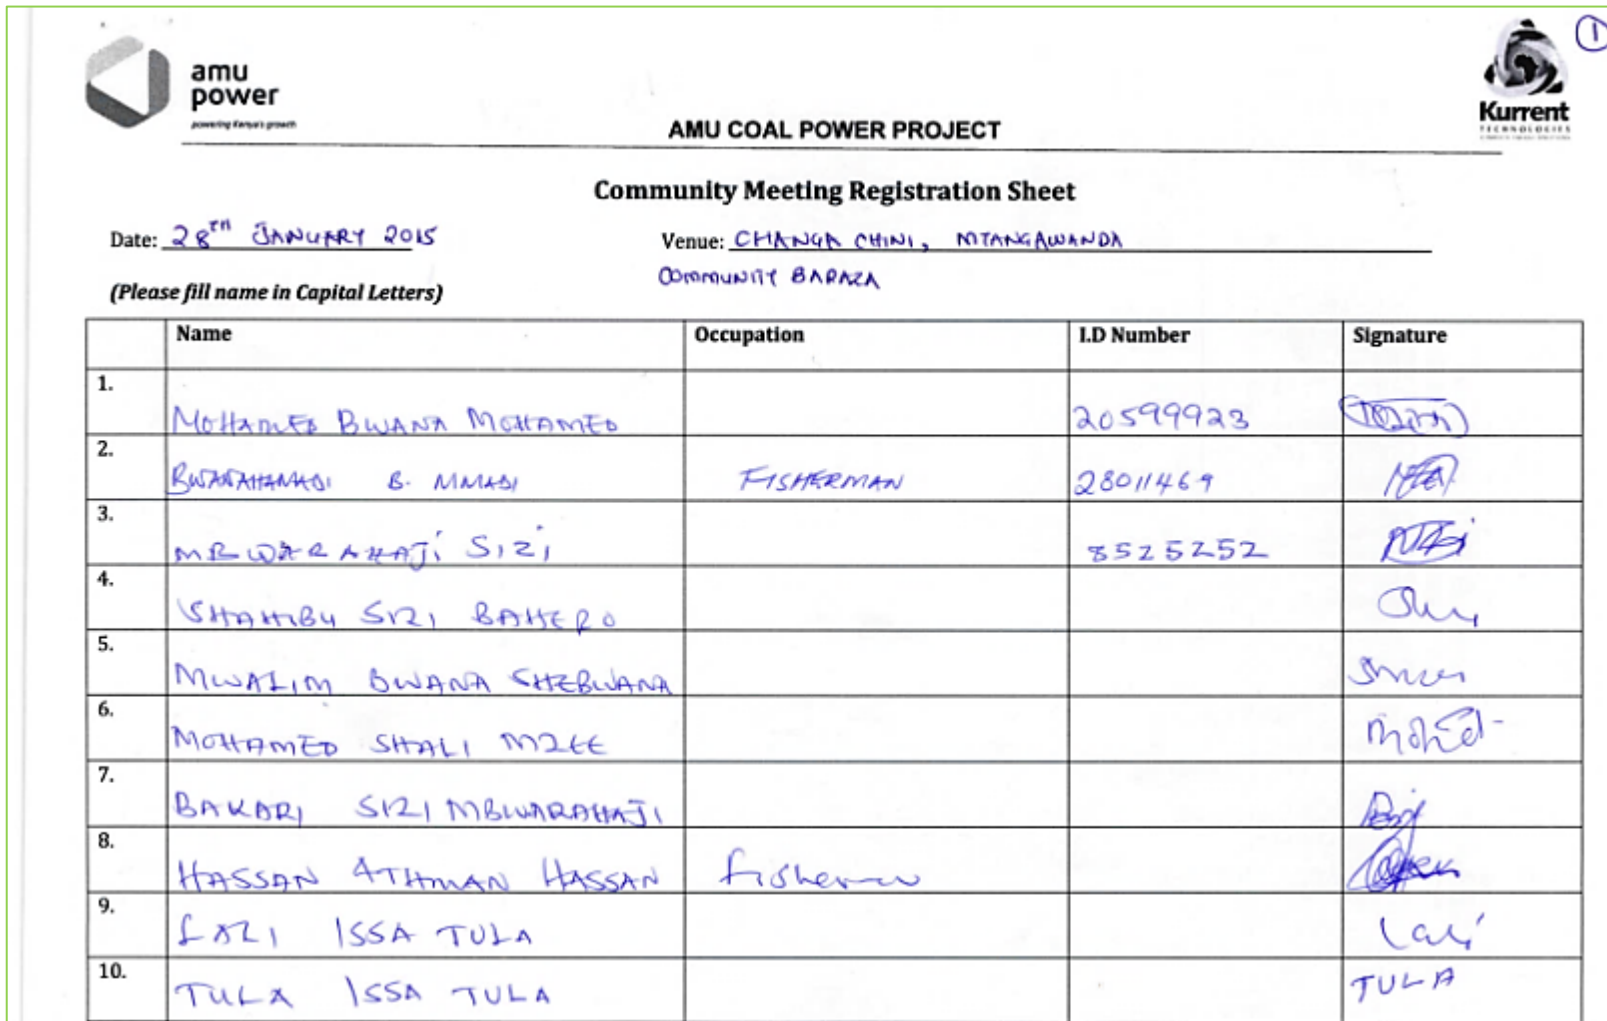 1
amu
power
powering Kenya's growth
Kurrent
TECHNOLOGIES
AMU COAL POWER PROJECT
Community Meeting Registration Sheet
Date: 28TH JANUARY 2015 Venue: CHANGA CHINI, MTANGAWANDA
COMMUNITY BARAZA
(Please fill name in Capital Letters)
Name Occupation I.D Number Signature
1. MOHAMED BWANA MOHAMED 20599923
2. BWANAHAMADI B. MMADI FISHERMAN 28011469
3. MBWARAHAJI SIZI 8525252
4. SHAHIBU SIZI BAHERO
5. MWALIM BWANA SHEBWANA
6. MOHAMED SHALI MZEE
7. BAKARI SIZI MBWARAHAJI
8. HASSAN ATHMAN HASSAN Fisherman
9. LALI ISSA TULA Lali
10. TULA ISSA TULA TULA